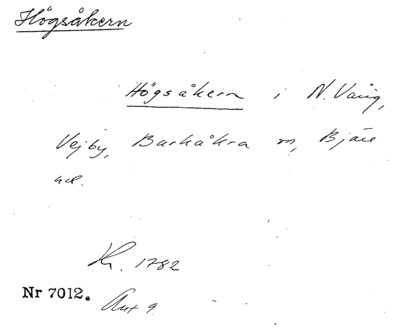 Högsåkern
Högsåkern i N. Vång,
Vejby, Barkåkra m, Bjäre
hd.
Kr. 1782
Nr 7012. Ant 9.